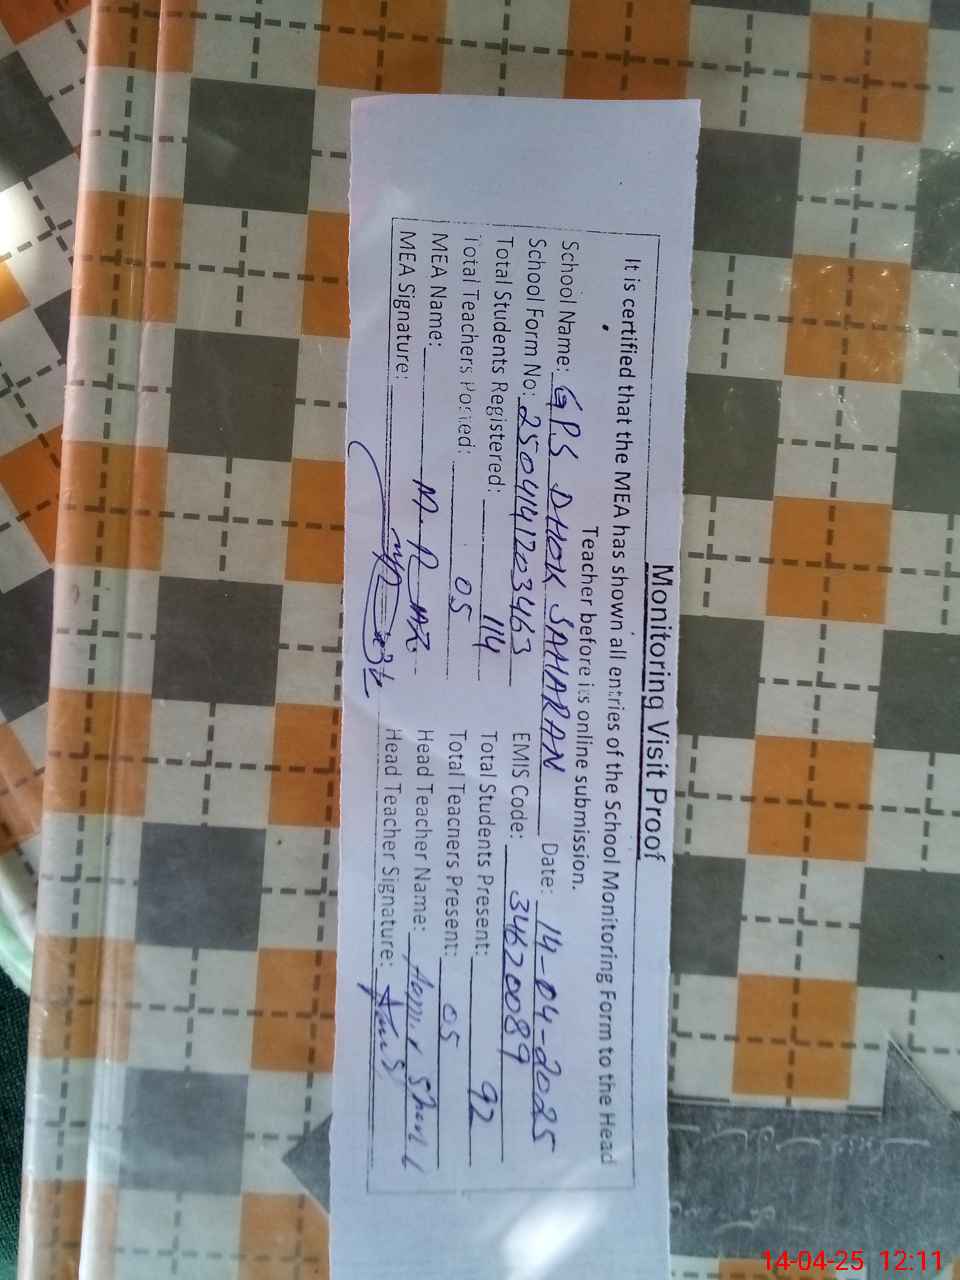 Monitoring Visit Proof
It is certified that the MEA has shown all entries of the School Monitoring Form to the Head
Teacher before its online submission.
School Name: GPS DHOK SAHARAN Date: 14-04-2025
School Form No: 2504141203463 EMIS Code: 34620089
Total Students Registered: 114 Total Students Present: 92
Total Teachers Posted: 05 Total Teachers Present: 05
MEA Name: Head Teacher Name:
MEA Signature: Head Teacher Signature:
14-04-25 12:11